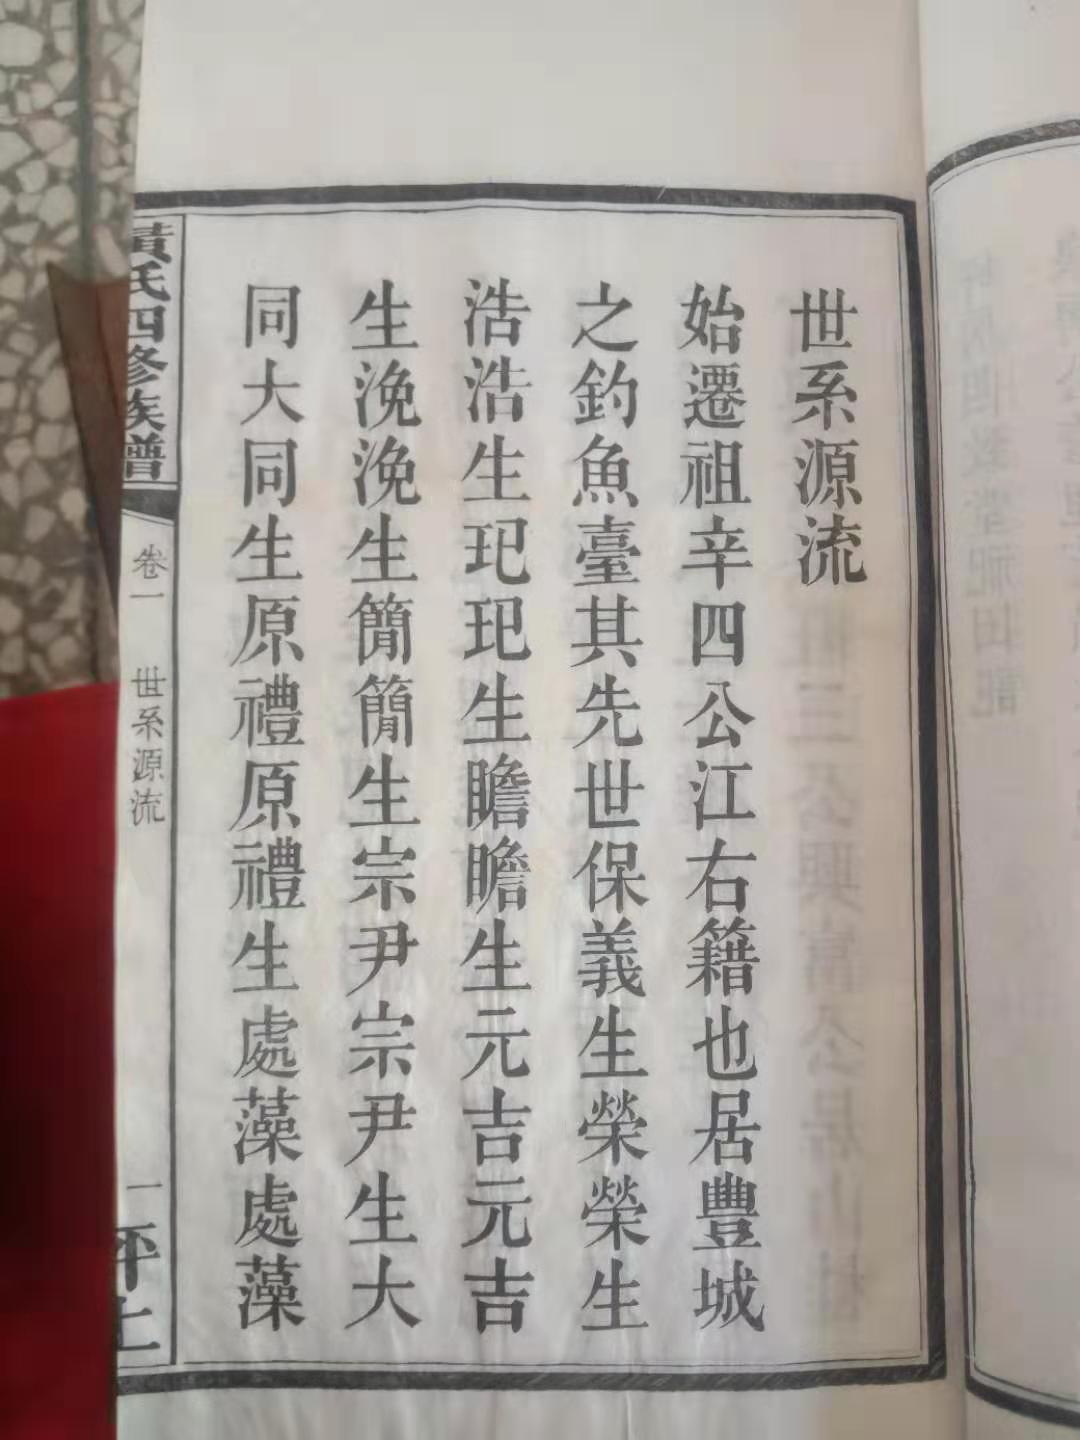 世系源流
始遷祖辛四公江右籍也居豐城
之釣魚臺其先世保義生榮榮生
浩浩生玘玘生瞻瞻生元吉元吉
生浼浼生簡簡生宗尹宗尹生大
同大同生原禮原禮生處藻處藻
黃氏四修族譜
卷一 世系源流
一
坪上